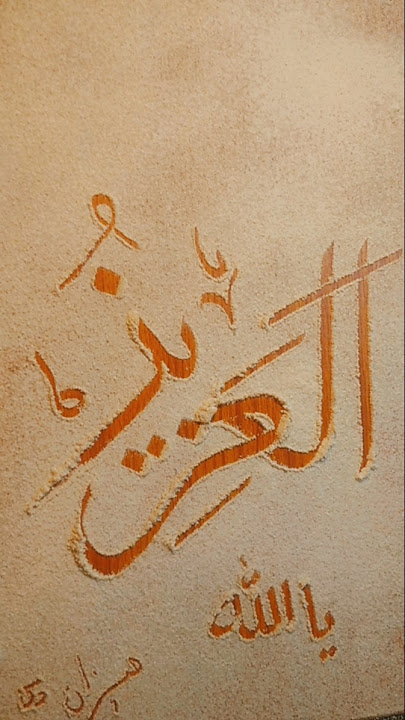 العَزِيزُ
يا الله